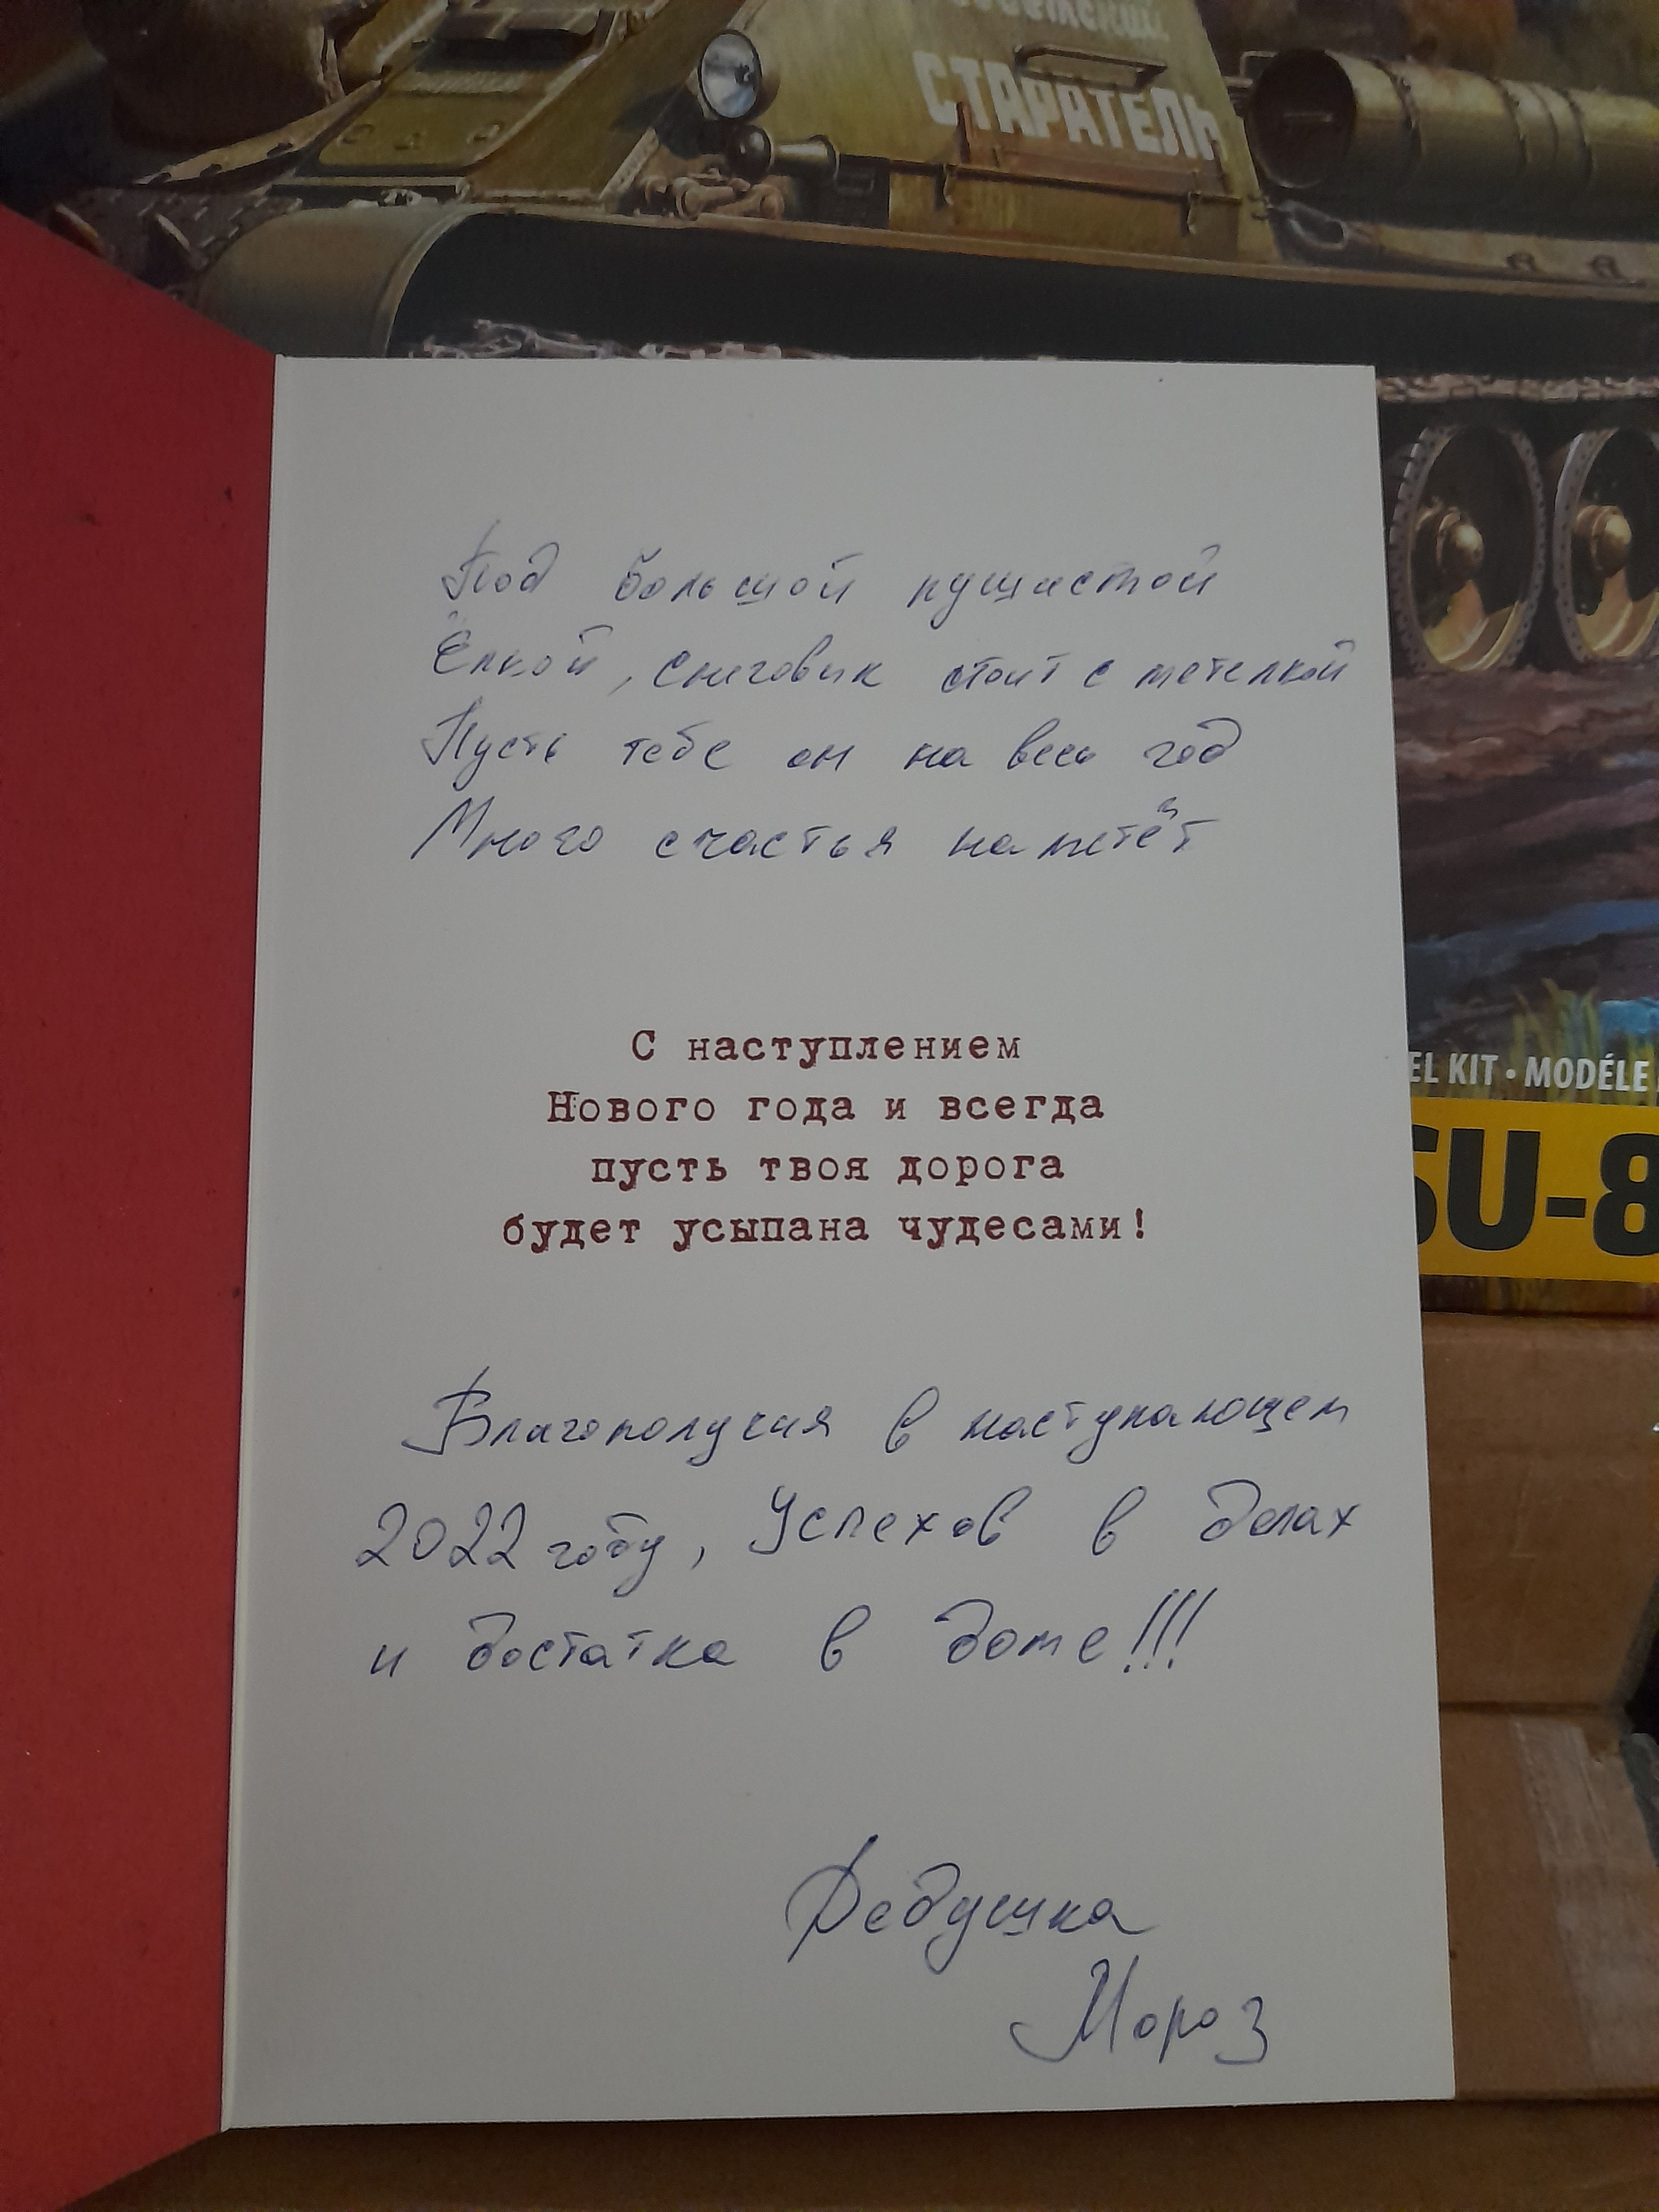 СТАРАТЕЛЬ
Под большой пушистой
Ёлкой, снеговик стоит с метелкой
Пусть тебе он на весь год
Много счастья наметёт
С наступлением
Нового года и всегда
пусть твоя дорога
будет усыпана чудесами!
EL KIT • MODÉLE
SU-8
Благополучия в наступающем
2022 году, Успехов в делах
и достатка в доме!!!
Дедушка
Мороз